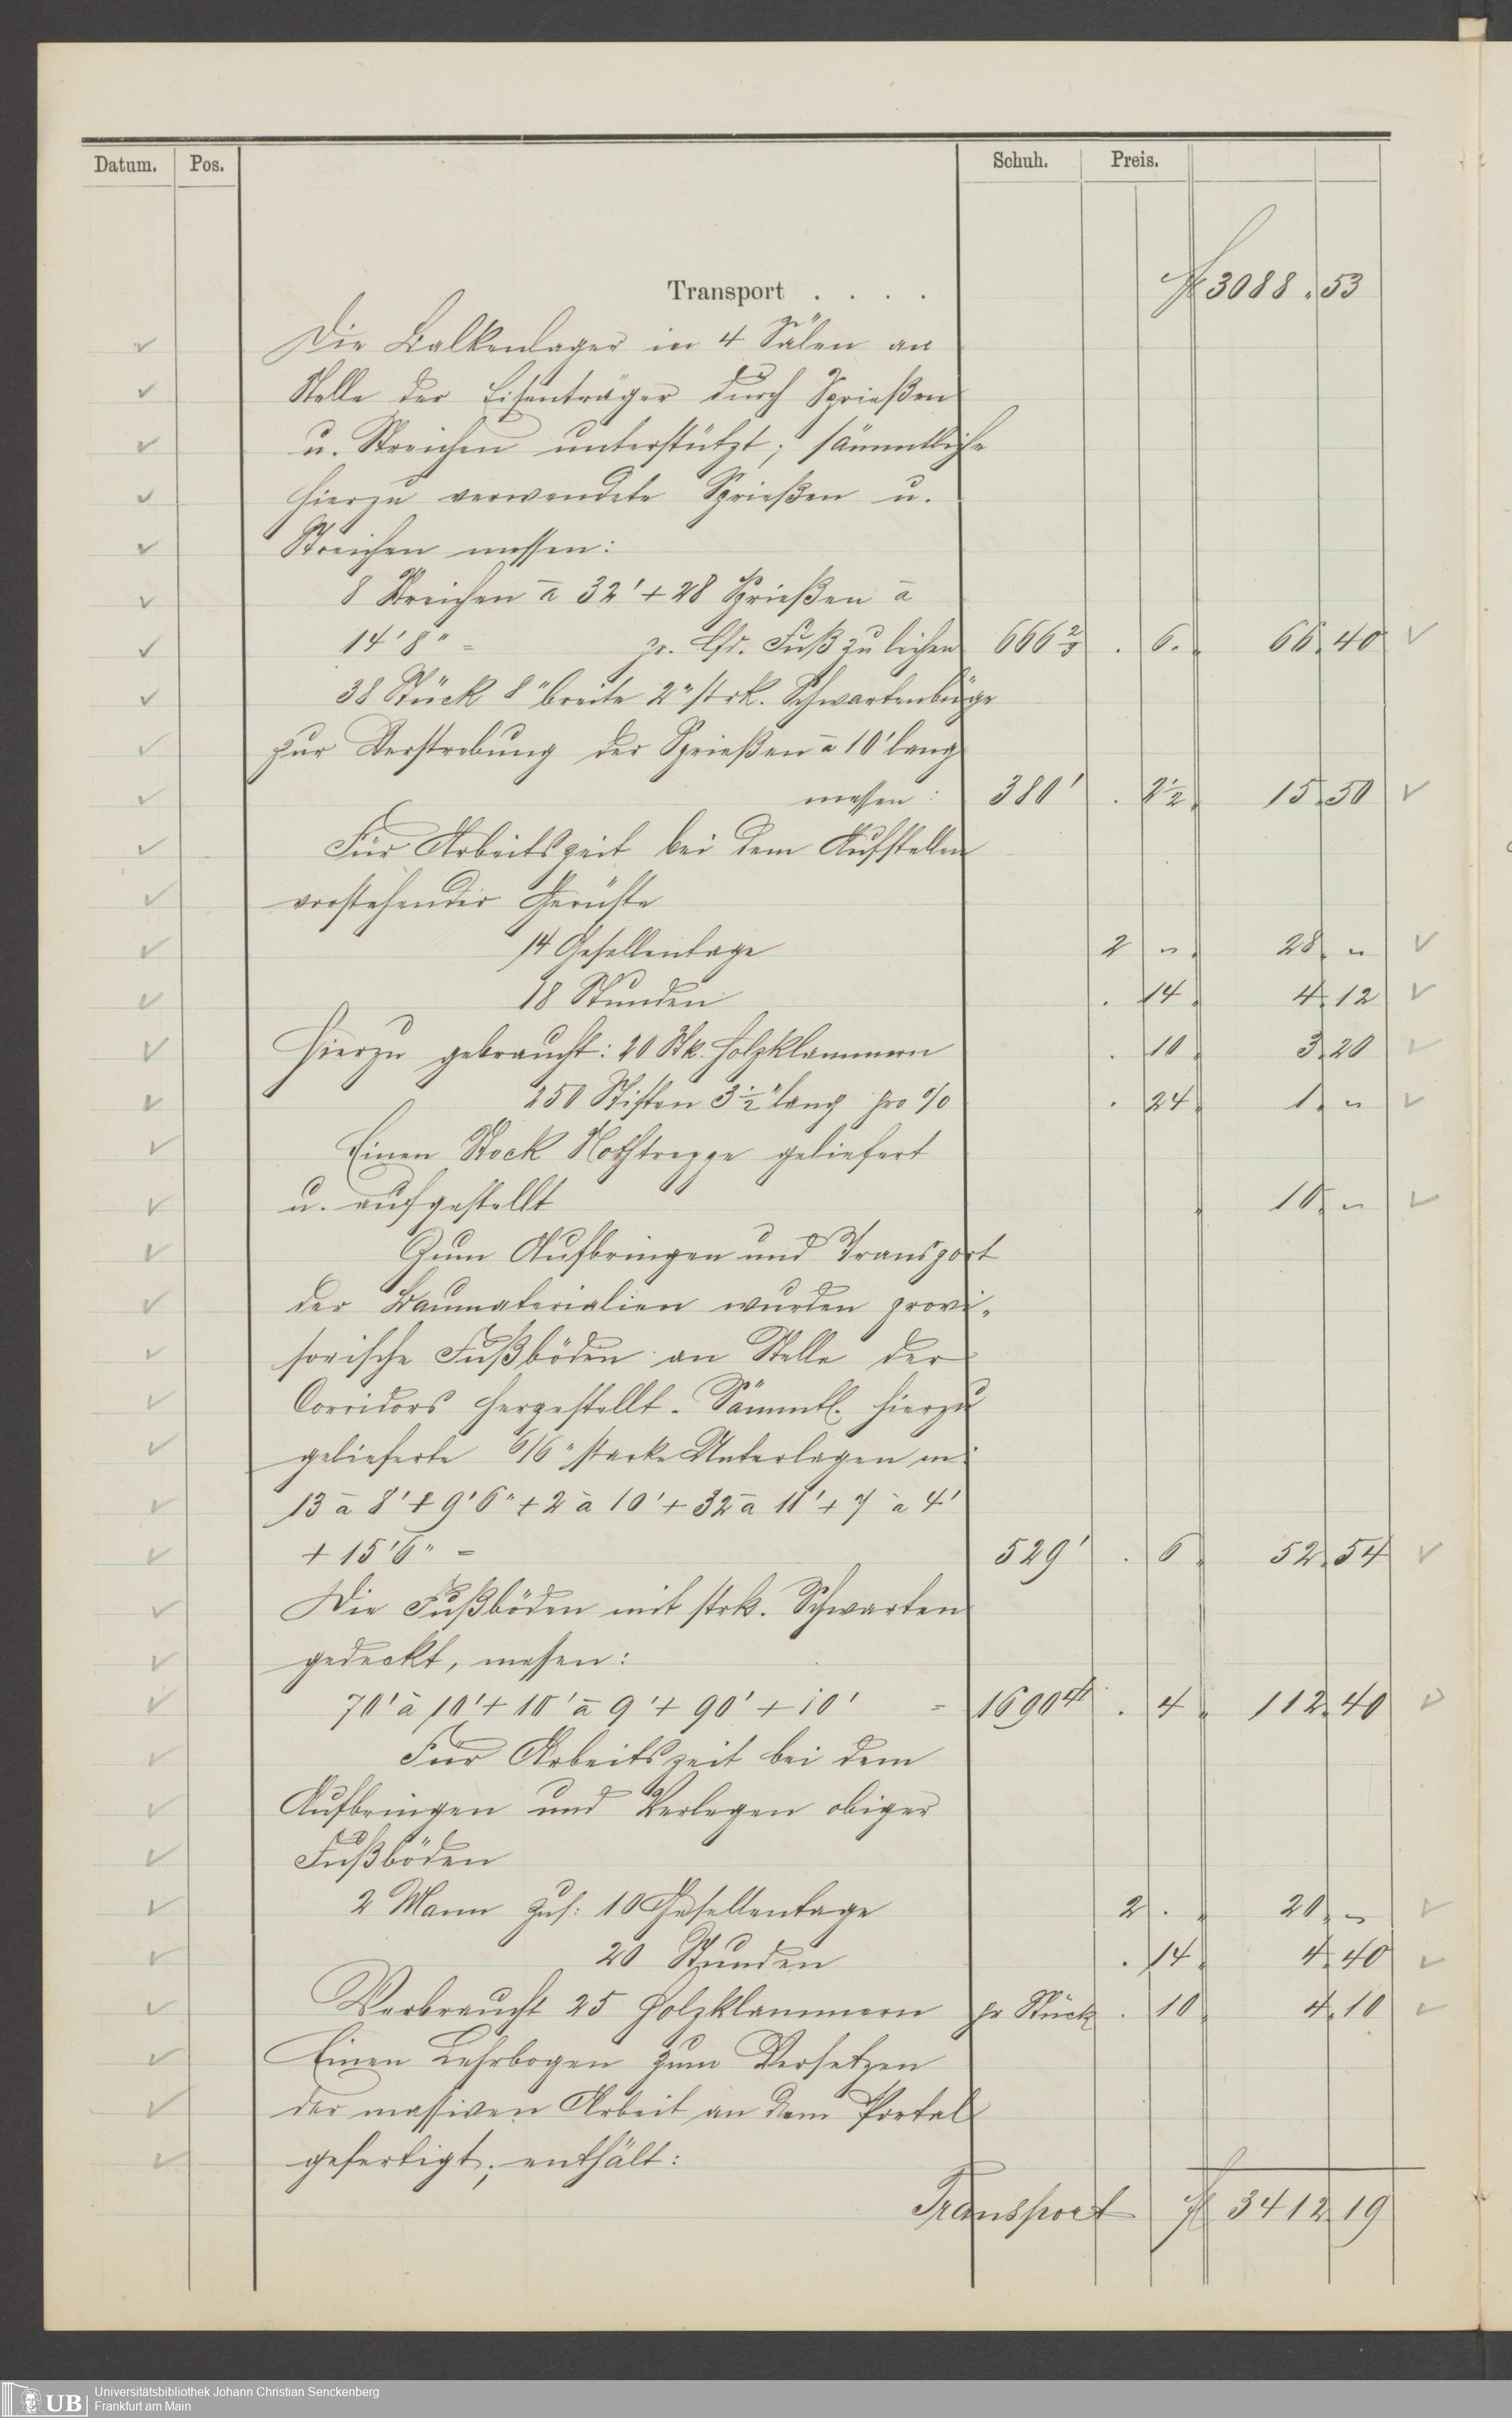 Datum. Pos. Schuh. Preis.
Transport . . . . fl 3088 . 53
Die Balkenlager in 4 Sälen an
Stelle der Eisenträger durch Sprießen
u. Streichen unterstützt; sämmtliche
hierzu verwendete Sprießen u.
Streichen messen:
8 Streichen à 32' + 28 Sprießen à
14' 8" = pr. lfd. Fuß zu leihen 666 2/3 . 6. 66. 40
38 Stück 8" breite 2" strk. Schwartenbüge
zur Verstrebung der Sprießen à 10' lang
messen: 380' . 2 1/2 15. 50
Für Arbeitszeit bei dem Aufstellen
vorstehender Gerüste
14 Gesellentage 2 " 28. "
18 Stunden . 14 4. 12
Hierzu gebraucht: 20 Stk. Holzklammern . 10 3. 20
250 Stiften 3 1/2" lang pro % . 24 1. "
Einen Stock Nothtreppe geliefert
u. aufgestellt 10. "
Zum Aufbringen und Transport
der Baumaterialien wurden provi-
sorische Fußböden an Stelle der
Corridors hergestellt. Sämmtl. hierzu
gelieferte 6/6" starke Unterlagen m:
13 à 8' + 9' 6" + 2 à 10' + 32 à 11' + 7 à 4'
+ 15' 6" = 529' . 6 52. 54
Die Fußböden mit strk. Schwarten
gedeckt, messen:
70' à 10' + 10' à 9' + 90' + 10' = 1690 . 4 112. 40
Für Arbeitszeit bei dem
Aufbringen und Verlegen obiger
Fußböden
2 Mann zus: 10 Gesellentage 2 . 20. "
20 Stunden . 14 4. 40
Verbraucht 25 Holzklammern pr Stück . 10 4. 10
Einen Lehrbogen zum Versetzen
der massiven Arbeit an dem Portal
gefertigt; enthält:
Transport fl 3412 19
UB Universitätsbibliothek Johann Christian Senckenberg
Frankfurt am Main